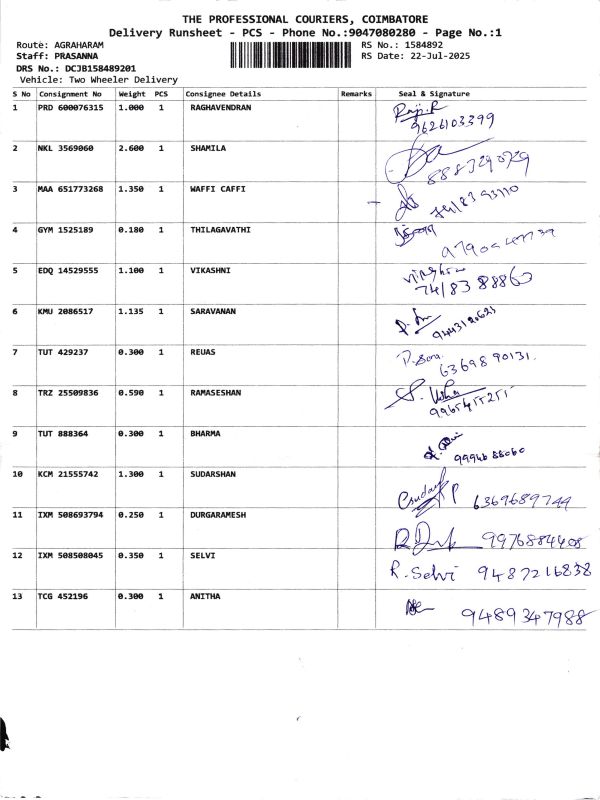 THE PROFESSIONAL COURIERS, COIMBATORE
Delivery Runsheet - PCS - Phone No.:9047080280 - Page No.:1
Route: AGRAHARAM RS No.: 1584892
Staff: PRASANNA RS Date: 22-Jul-2025
DRS No.: DCJB158489201
Vehicle: Two Wheeler Delivery
S No Consignment No Weight PCS Consignee Details Remarks Seal & Signature
1 PRD 600076315 1.000 1 RAGHAVENDRAN
9626103399
2 NKL 3569060 2.600 1 SHAMILA
3 MAA 651773268 1.350 1 WAFFI CAFFI
4 GYM 1525189 0.180 1 THILAGAVATHI
5 EDQ 14529555 1.100 1 VIKASHNI
74183 88860
6 KMU 2086517 1.135 1 SARAVANAN
7 TUT 429237 0.300 1 REUAS
63698 90131.
8 TRZ 25509836 0.590 1 RAMASESHAN
9965455255
9 TUT 888364 0.300 1 BHARMA
99946 88060
10 KCM 21555742 1.300 1 SUDARSHAN
6369689749
11 IXM 508693794 0.250 1 DURGARAMESH
9976884408
12 IXM 508508045 0.350 1 SELVI
R. Selvi 9487216838
13 TCG 452196 0.300 1 ANITHA
9489347988